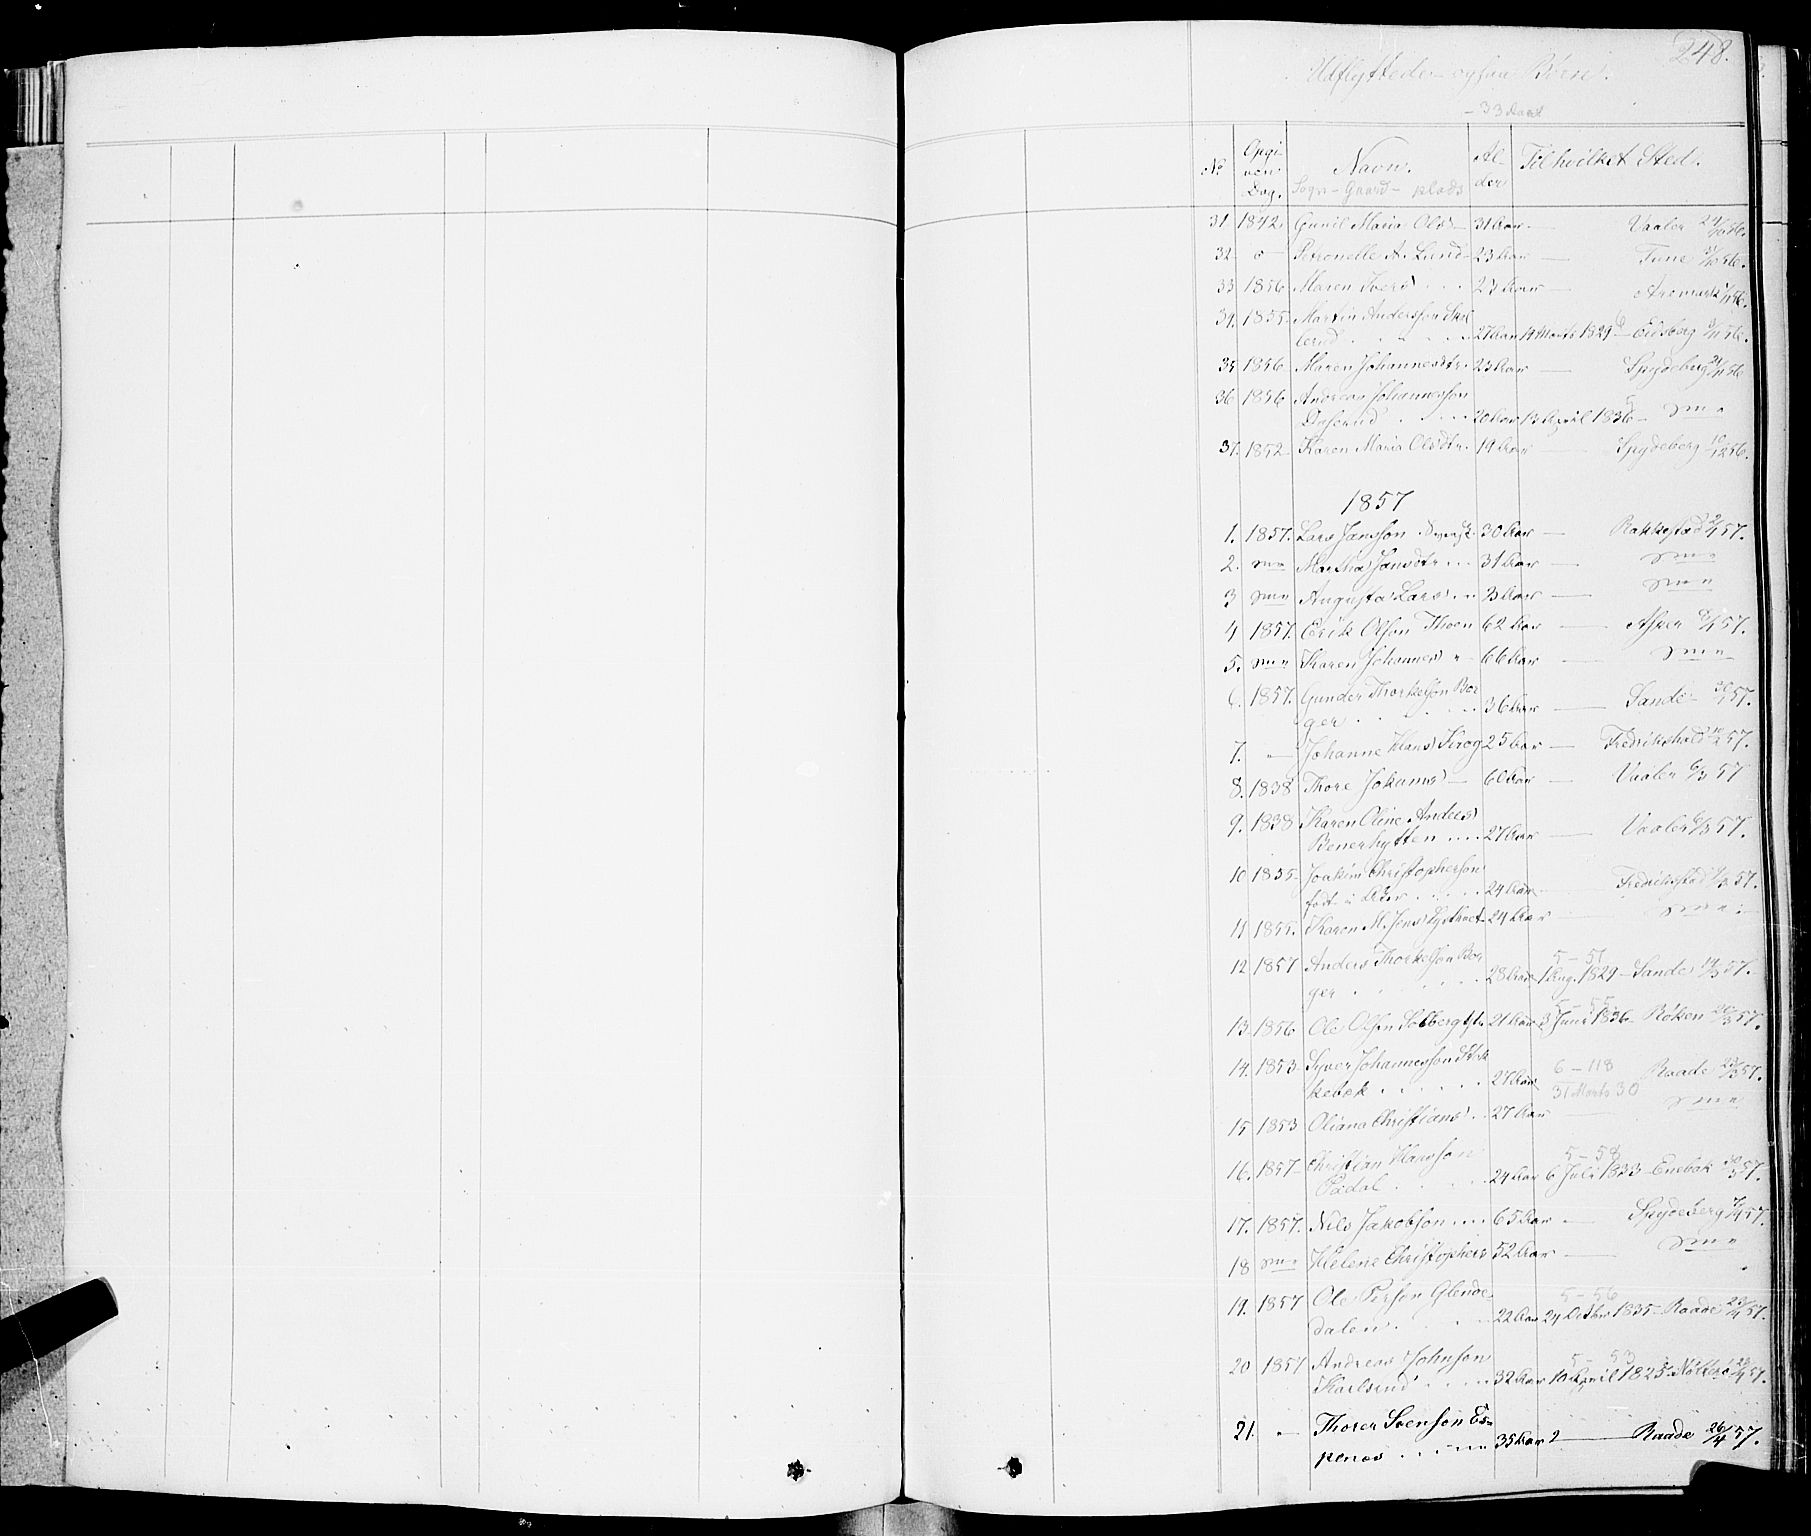 248.
Udflyttede
Børn.
No Opgiven Dag. Navn. Alder Til hvilket Sted.
Sogn - Gaard - plads
31. 1842. Gunil Maria Olsd 31 Aar - Vaaler 24/10 56.
32 o Petronelle A. Lund 23 Aar - Tune /10 56.
33 1856 Maren Ivers 27 Aar - Aremark /11 56.
34. 1855. Martin Andersson
lerud 27 Aar 19 Marts 1829 - Eidsberg /11 56.
35 1856 Maren Johannesdtr. 23 Aar - Spydeberg 24/11 56
36 1856 Andreas Johannesson
20 Aar 13 April 1836 -
37. 1852 Karen Maria Olsdtr. 19 Aar - Spydeberg 10/12 56.
1857
1. 1857. Lars Jansson Svensk. 30 Aar - Rakkestad 2/1 57.
2. Martha Jansdtr 31 Aar -
3 Augusta Lars 3 Aar -
4 1857. Erik Olson Thoen 62 Aar - Asker 8/1 57.
5. Karen Johannes 66 Aar -
6. 1857. Gunder Thorkelson Bor
ger 36 Aar - Sande 30/1 57.
7. " Johanne Hans Krog 25 Aar - Fredrikshald 10/2 57.
8. 1838 Thore Johanns 60 Aar - Vaaler 6/3 57
9. 1838 Karen Oline Anders
Benerhytten 27 Aar - Vaaler 6/3 57.
10 1855 Joakim Christopherson
født i 24 Aar - Fredrikstad /3 57.
11 1855. Karen M. Jens 24 Aar
5 - 51
12 1857 Anders Thorkelson Bor
ger 28 Aar 1 Aug. 1829 - Sande 14/3 57.
5 - 55
13. 1856 Ole Olsen Solberg 21 Aar 3 Juni 1836 - Røken 20/3 57.
14. 1853 Syver Johannesson
kebæk 27 Aar
6 - 118
31 Marts 30 Raade 23/3 57.
15 1853 Oliana Christians 27 Aar
5 - 58
16. 1857 Christian Hansson
24 Aar 6 Juli 1833 - Enebak 30/3 57.
17. 1857. Nils Jakobson 65 Aar - Spydeberg /4 57.
18 Helene Christophers 52 Aar -
5 - 56
19. 1857 Ole Person Glende
dalen 22 Aar 24 Octbr 1835 - Raade 23/4 57.
5 - 53
20 1857 Andreas Johnson
Karlsrud 32 Aar 10 April 1825 Nøtterø 23/4 57.
21. " Thorer Svenson Es=
penæs 35 Aar 2 - Raade 26/4 57.